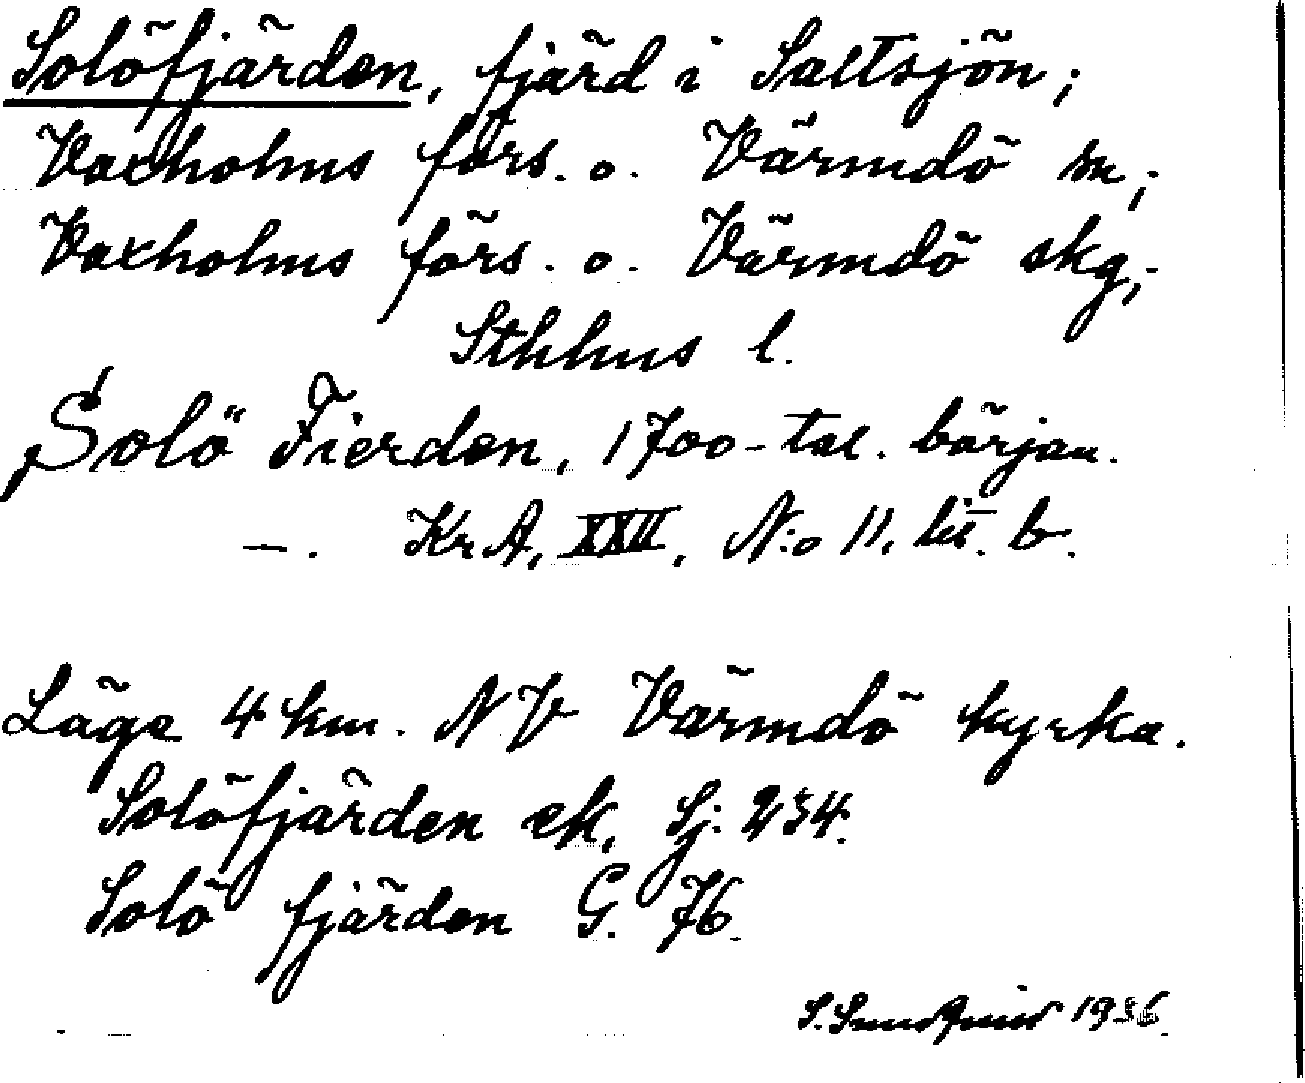 Solöfjärden, fjärd i Saltsjön;
Vaxholms förs. o. Värmdö sn;
Vaxholms förs. o. Värmdö skg;
Sthlms l.
Solö Fierden, 1700-tal. början.
—. Kr A, XXII, N:o 11. lit. b.
Läge 4 km. NV Värmdö kyrka.
Solöfjärden ek. Sj. 234.
Solö fjärden G. 76.
S. 1936.